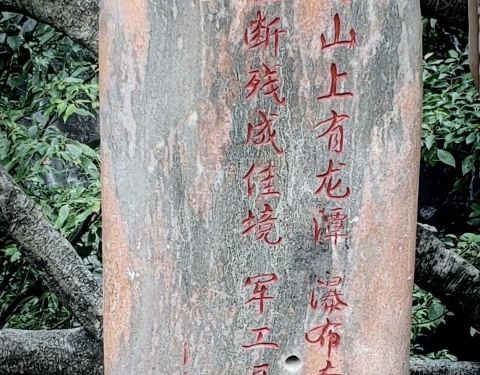 山上有龙潭 瀑布
断残成佳境 军工